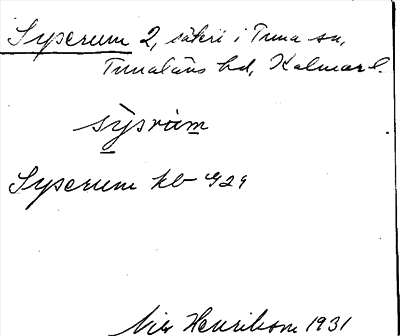 Syserum 2, säteri i Tuna sn,
Tunaläns hd, Kalmar l.
sỳsrùm
Syserum kb
Nils Henrikson 1931